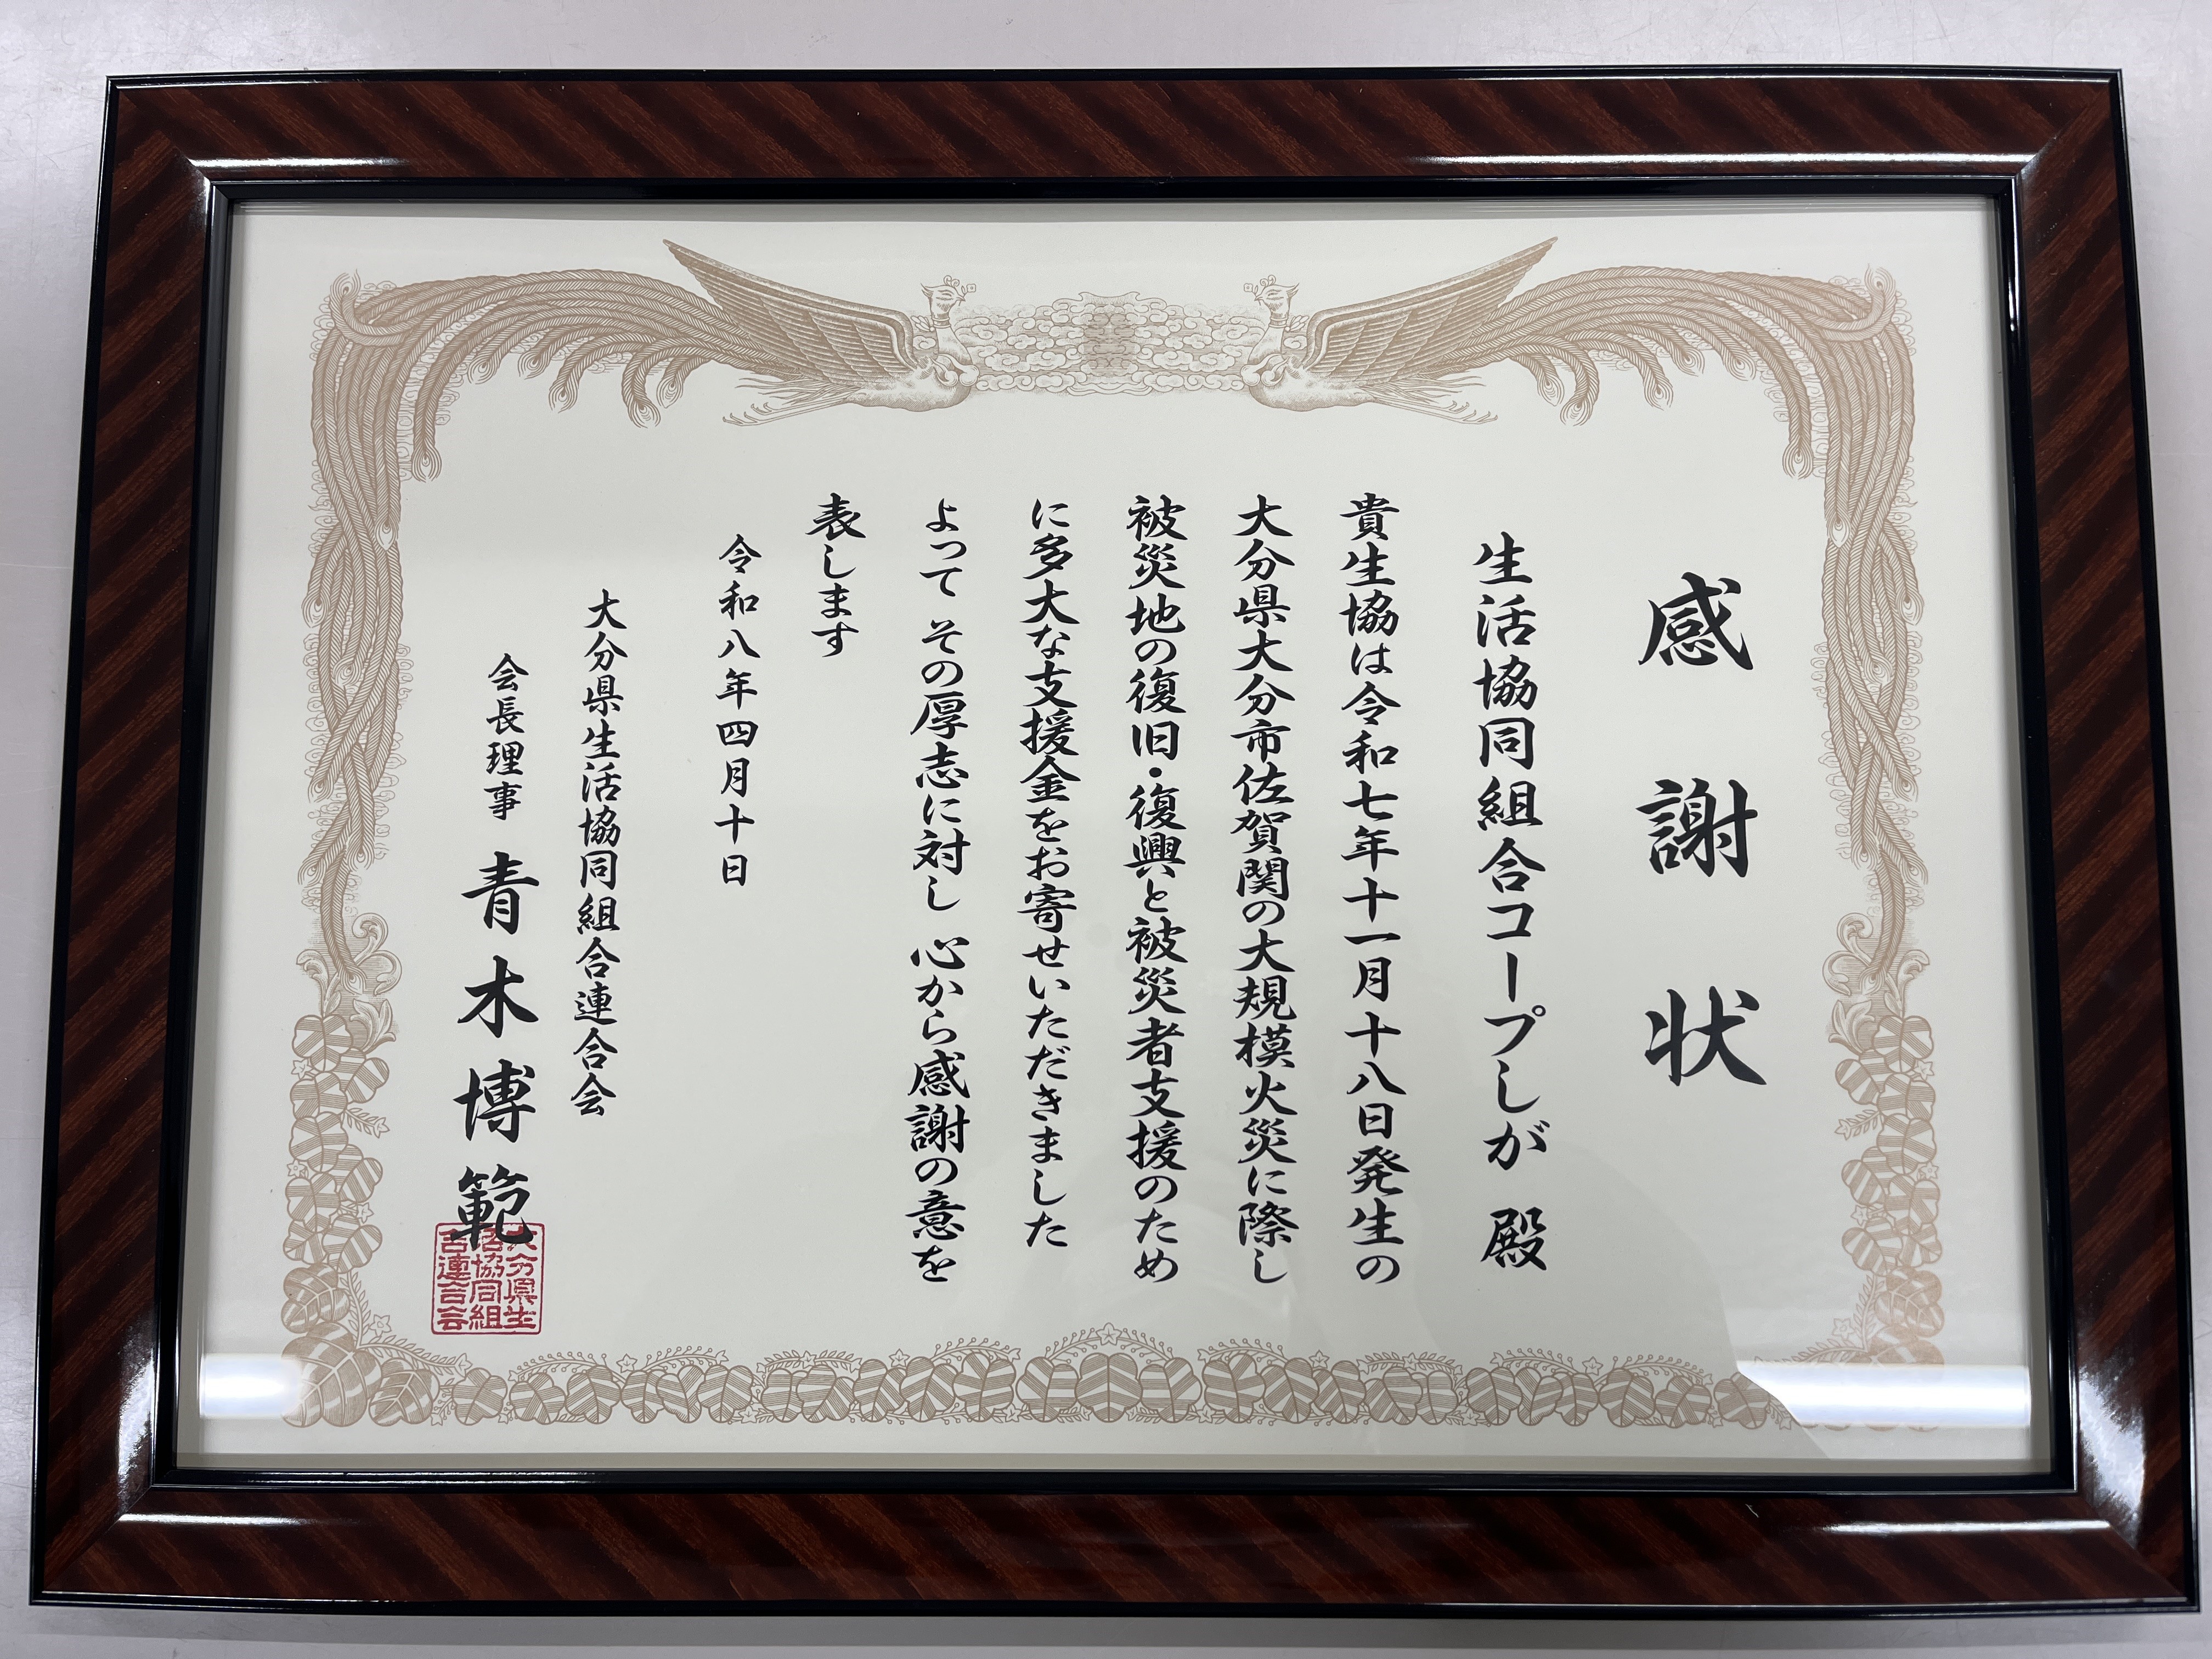 感謝状
生活協同組合コープしが 殿
貴生協は令和七年十一月十八日発生の
大分県大分市佐賀関の大規模火災に際し
被災地の復旧・復興と被災者支援のため
に多大な支援金をお寄せいただきました
よって その厚志に対し 心から感謝の意を
表します
令和八年四月十日
大分県生活協同組合連合会
会長理事 青木博範
大分県生
活協同組
合連合会